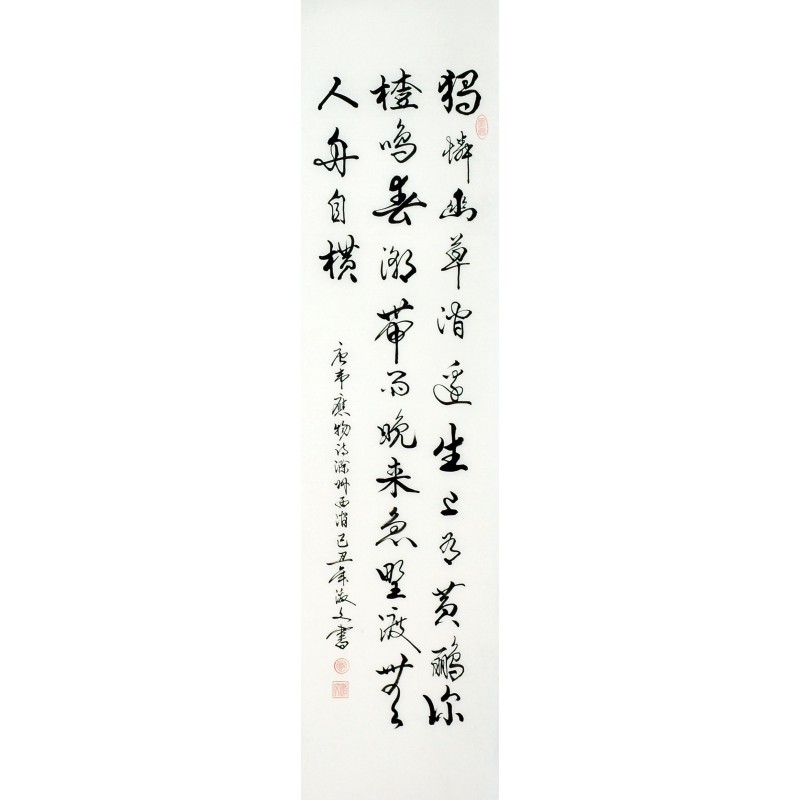 獨憐幽草澗邊生上有黃鸝深
樹鳴春潮帶雨晚來急野渡無
人舟自橫
唐韦應物诗滁州西澗己丑年文書